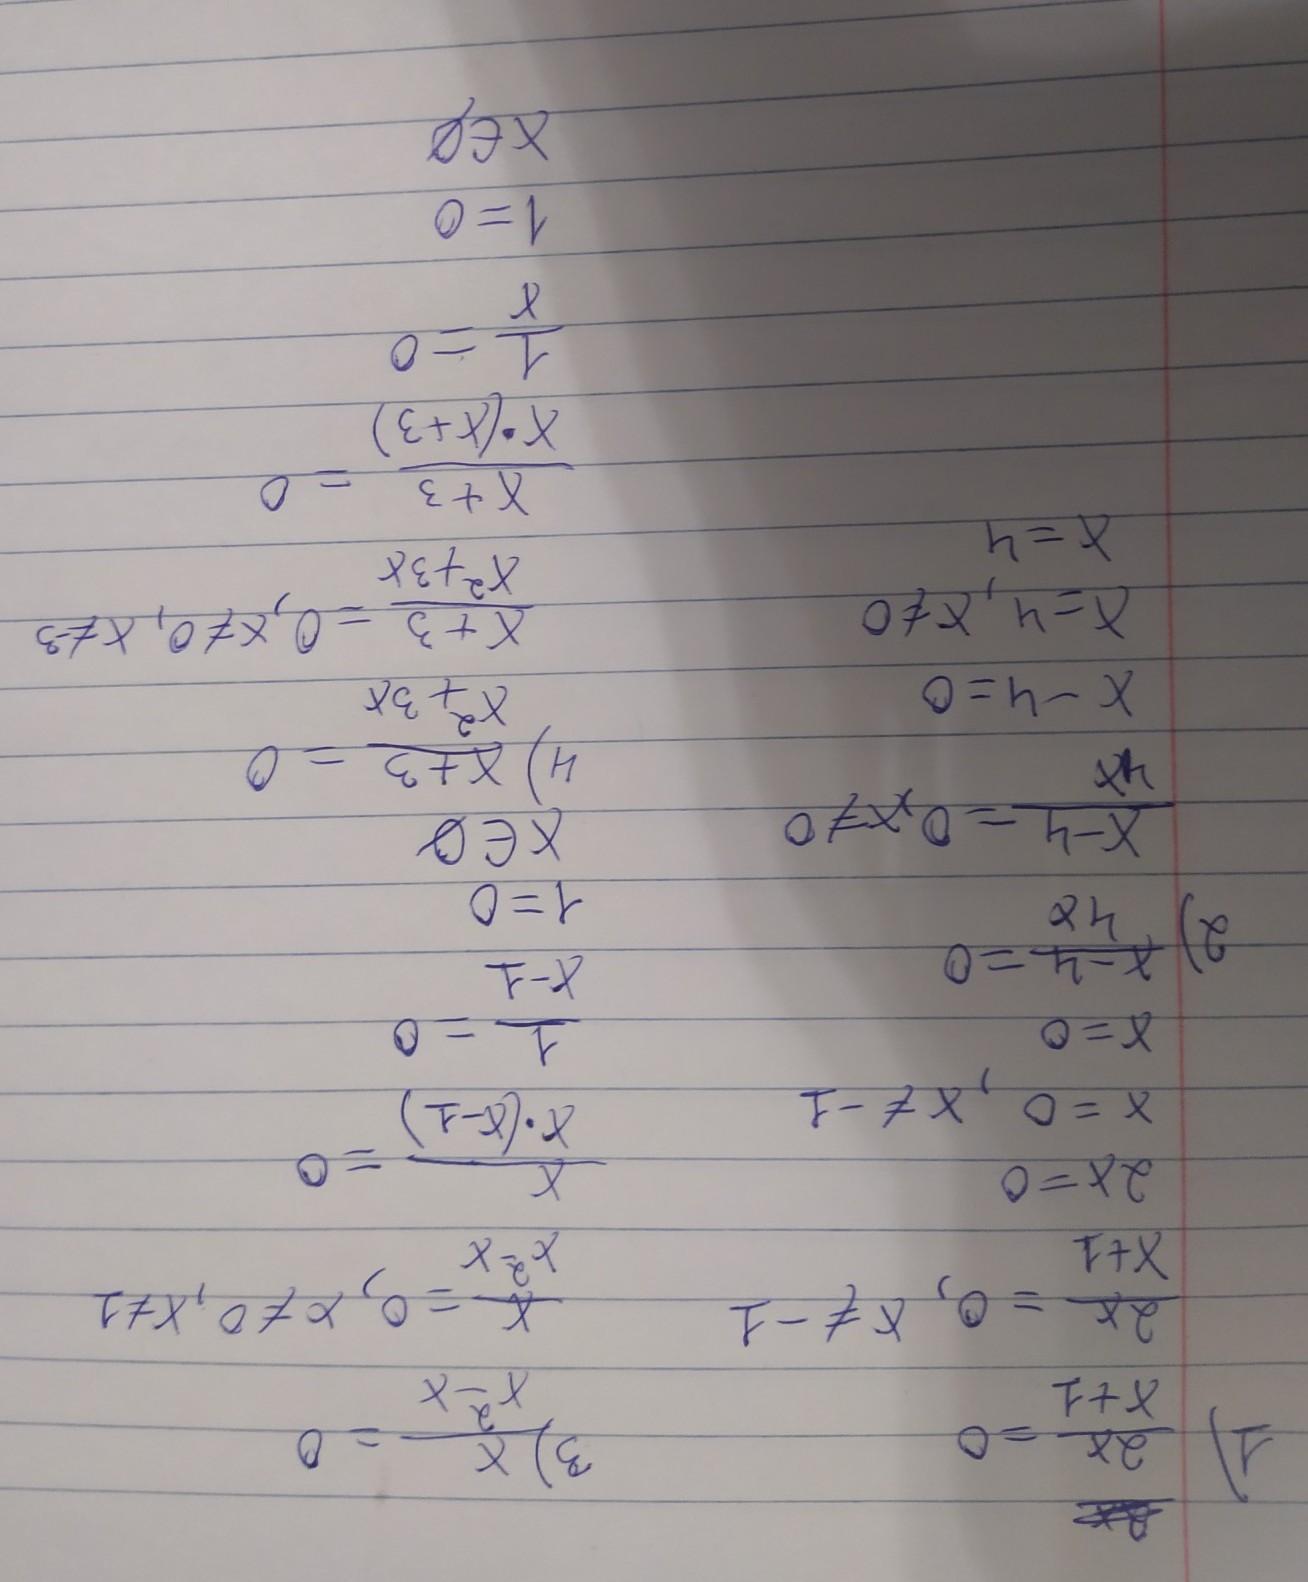 1) 2x/(x+1) = 0
2x/(x+1) = 0, x ≠ -1
2x = 0
x = 0, x ≠ -1
x = 0
2) (x-4)/(4x) = 0
(x-4)/(4x) = 0, x ≠ 0
x - 4 = 0
x = 4, x ≠ 0
x = 4
3) x/(x²-x) = 0
x/(x²-x) = 0, x ≠ 0, x ≠ 1
x/(x·(x-1)) = 0
1/(x-1) = 0
1 = 0
x ∈ ∅
4) (x+3)/(x²+3x) = 0
(x+3)/(x²+3x) = 0, x ≠ 0, x ≠ -3
(x+3)/(x·(x+3)) = 0
1/x = 0
1 = 0
x ∈ ∅